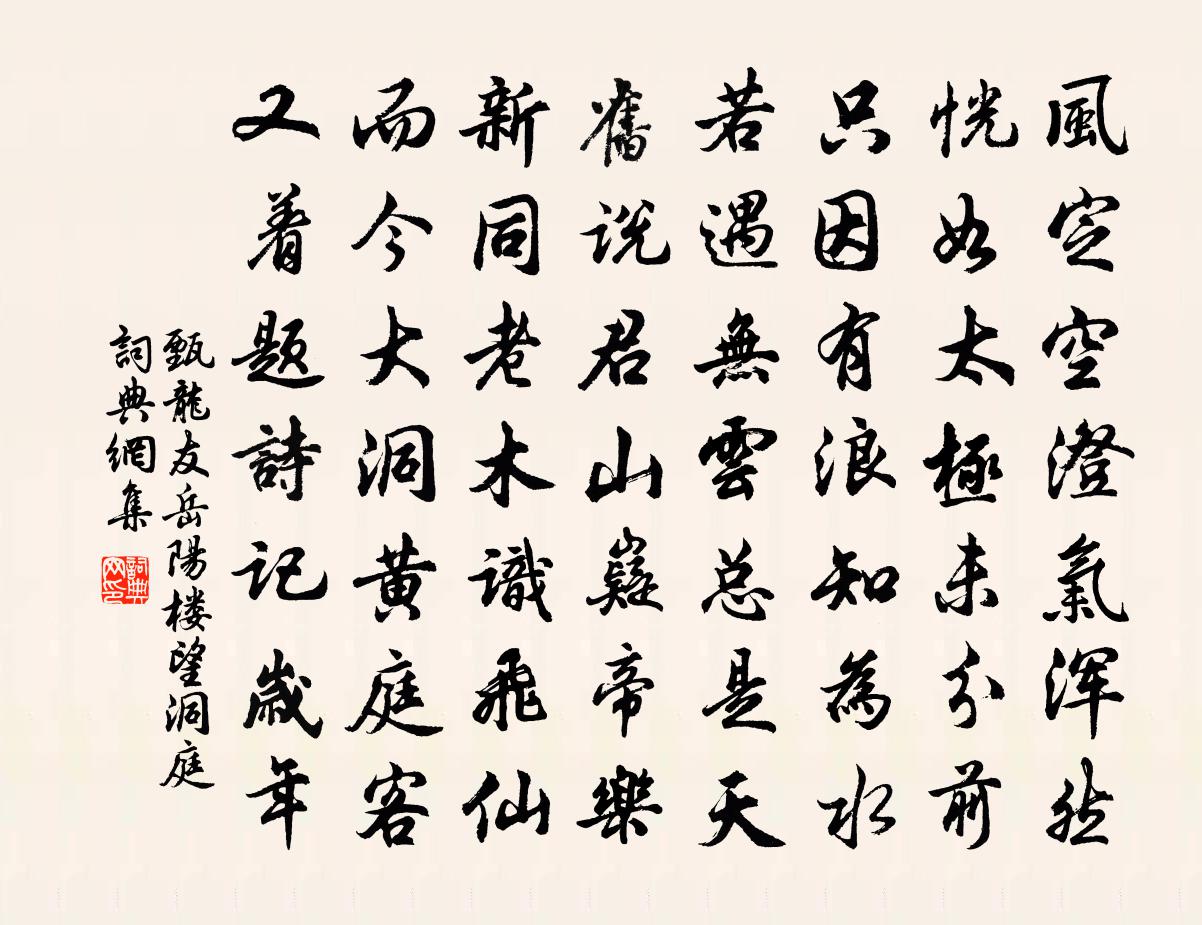 風定空澄氣浑然
恍如太極未分前
只因有浪知為水
若遇無雲总是天
舊说君山嶷帝樂
新同老木識飛仙
而今大洞黄庭客
又着题詩记歲年
甄龍友岳陽楼望洞庭
詞典網集
詞典网印